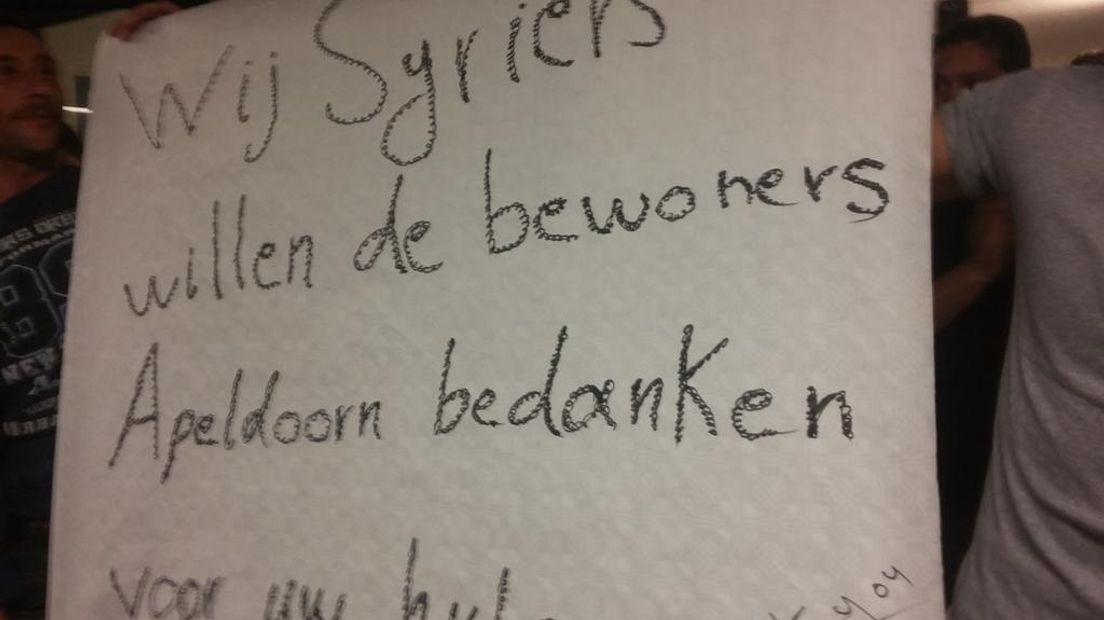 Wij Syriers
willen de bewoners
Apeldoorn bedanken
voor uw hulp
you
NEW